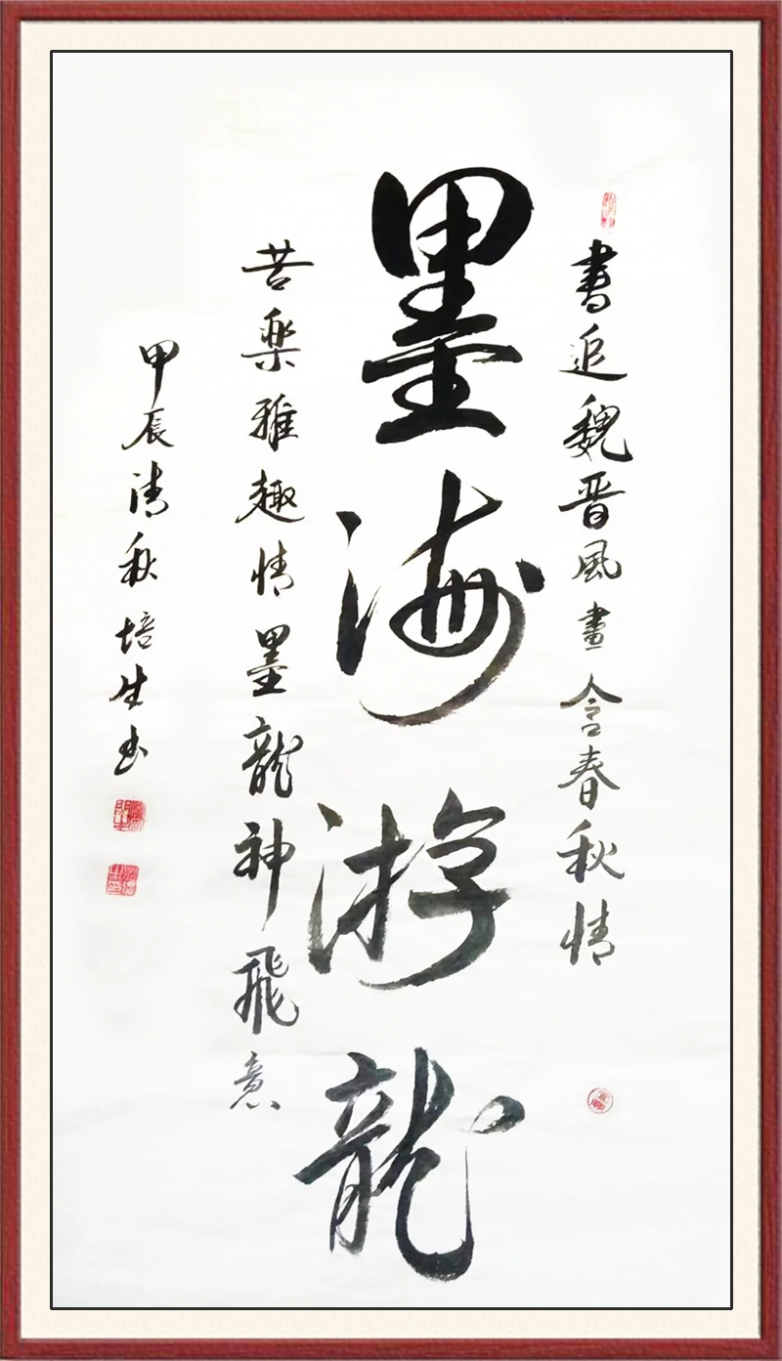 書追魏晋風畫含春秋情
墨海游龍
苦楽雅趣情墨龍神飛意
甲辰清秋培生書